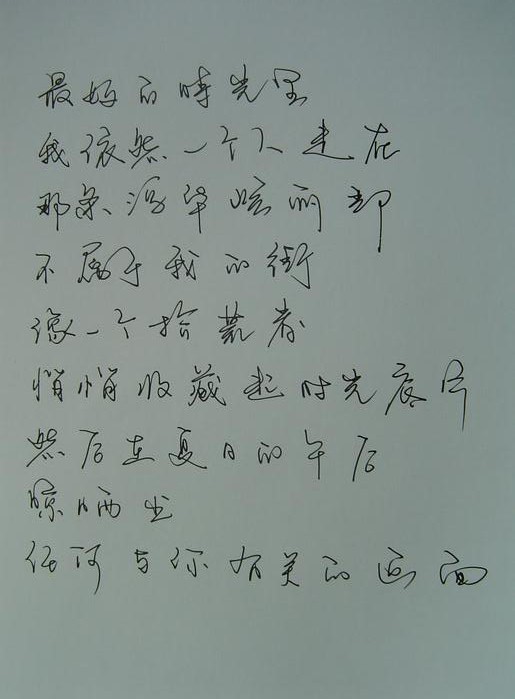 最好的時光里
我依然一个人走在
那条浮华喧而却
不属于我的街
像一个拾荒者
悄悄收藏起时光底片
然后在夏日的午后
晾晒出
任何与你有关的画面